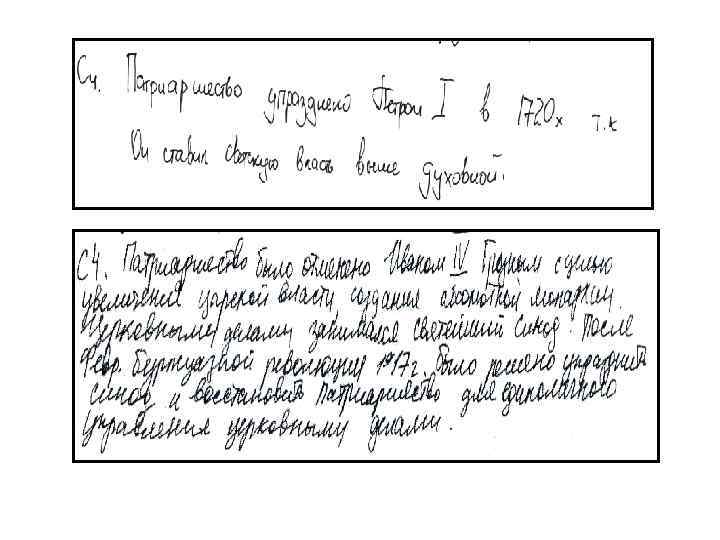 С4. Патриаршество упразднено Петром I в 1720х т.к
Он ставил светскую власть выше духовной.
С4. Патриаршество было отменено Иваном IV Грозным с целью
увеличения царской власти, создания абсолютной монархии.
Церковными делами занимался светейший синод. После
Февр. Буржуазной революции 1917г. было решено упразднить
синод и восстановить патриаршество для единоличного
управления церковными делами.